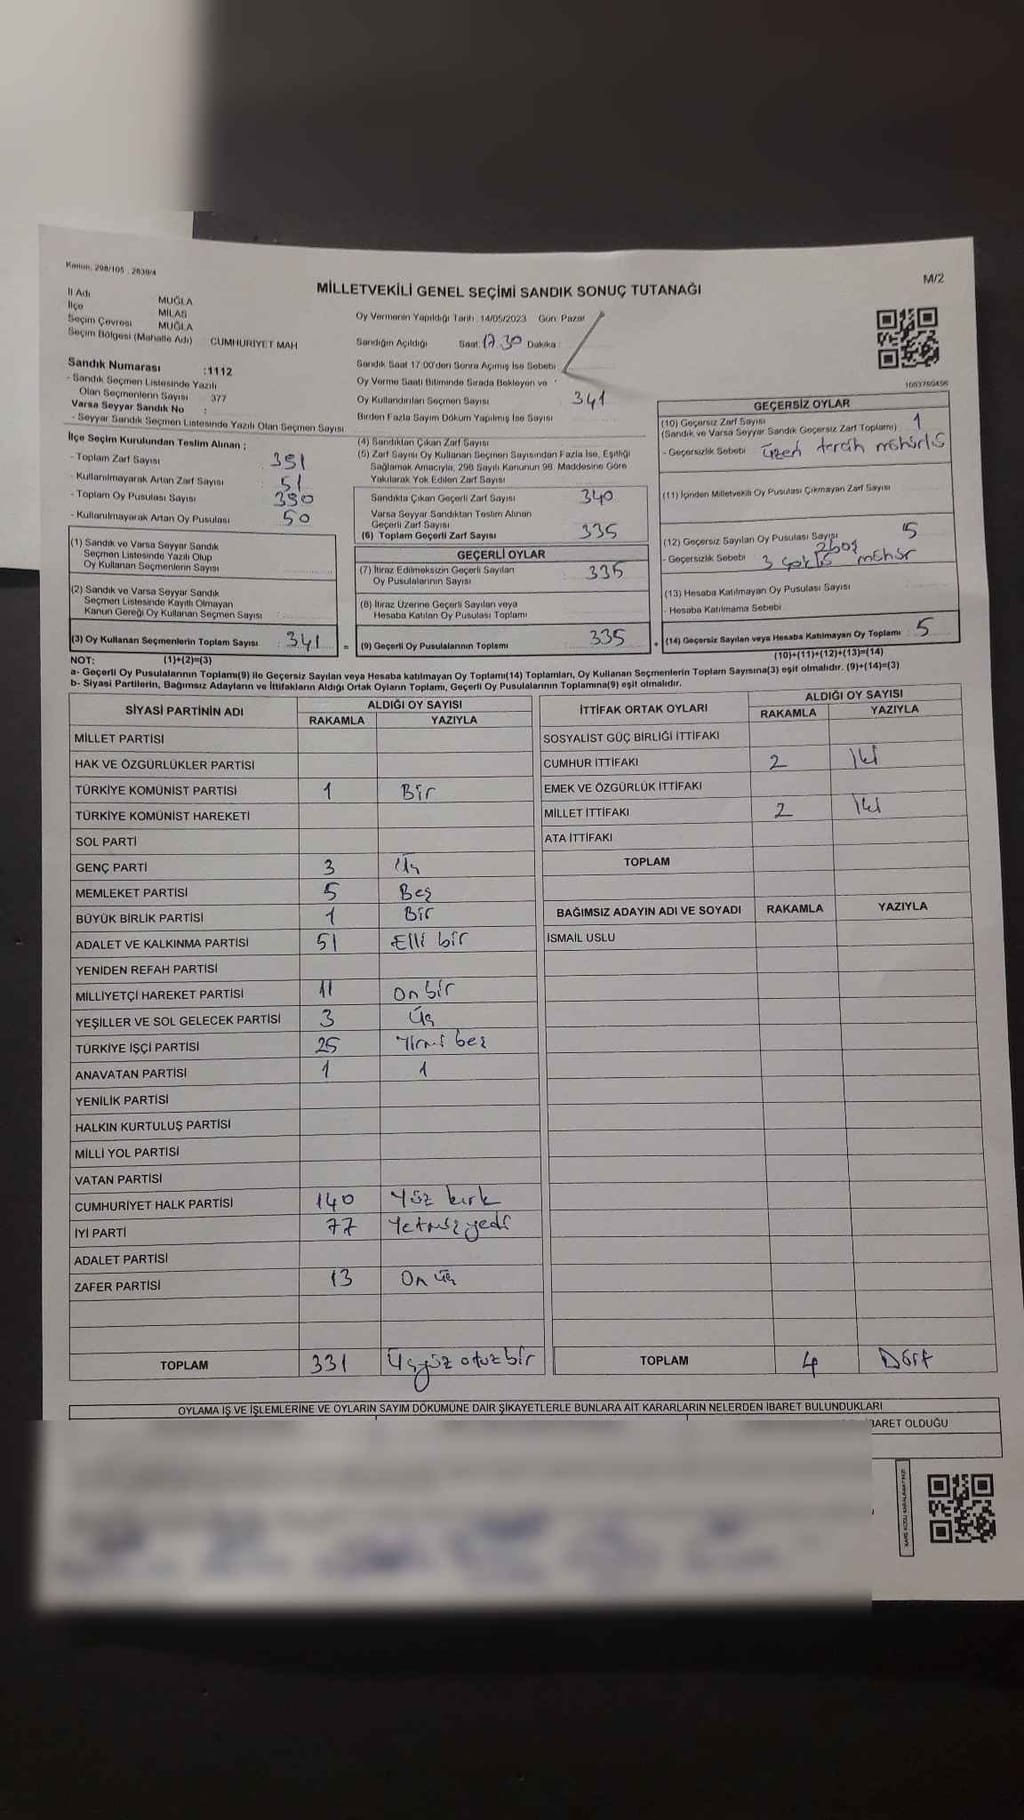 Kanun: 298/105 . 2839/4
M/2
MİLLETVEKİLİ GENEL SEÇİMİ SANDIK SONUÇ TUTANAĞI
İl Adı MUĞLA
İlçe MİLAS
Seçim Çevresi MUĞLA
Seçim Bölgesi (Mahalle Adı) CUMHURİYET MAH
Sandık Numarası :1112
- Sandık Seçmen Listesinde Yazılı
Olan Seçmenlerin Sayısı 377
Varsa Seyyar Sandık No :
- Seyyar Sandık Seçmen Listesinde Yazılı Olan Seçmen Sayısı
Oy Vermenin Yapıldığı Tarih: 14/05/2023 Gün: Pazar
Sandığın Açıldığı Saat: 17.30 Dakika:
Sandık Saat 17:00'den Sonra Açımış İse Sebebi
Oy Verme Saati Bitiminde Sırada Bekleyen ve
Oy Kullandırılan Seçmen Sayısı 341
Birden Fazla Sayım Döküm Yapılmış İse Sayısı
1053759456
İlçe Seçim Kurulundan Teslim Alınan :
- Toplam Zarf Sayısı 391
- Kullanılmayarak Artan Zarf Sayısı 51
- Toplam Oy Pusulası Sayısı 390
- Kullanılmayarak Artan Oy Pusulası 50
(1) Sandık ve Varsa Seyyar Sandık
Seçmen Listesinde Yazılı Olup
Oy Kullanan Seçmenlerin Sayısı
(2) Sandık ve Varsa Seyyar Sandık
Seçmen Listesinde Kayıtlı Olmayan
Kanun Gereği Oy Kullanan Seçmen Sayısı
(3) Oy Kullanan Seçmenlerin Toplam Sayısı 341
(1)+(2)=(3)
(4) Sandıktan Çıkan Zarf Sayısı
(5) Zarf Sayısı Oy Kullanan Seçmen Sayısından Fazla İse, Eşitliği
Sağlamak Amacıyla, 298 Sayılı Kanunun 98. Maddesine Göre
Yakılarak Yok Edilen Zarf Sayısı
Sandıkta Çıkan Geçerli Zarf Sayısı 340
Varsa Seyyar Sandıktan Teslim Alınan
Geçerli Zarf Sayısı
(6) Toplam Geçerli Zarf Sayısı 335
GEÇERLİ OYLAR
(7) İtiraz Edilmeksizin Geçerli Sayılan
Oy Pusulalarının Sayısı 335
(8) İtiraz Üzerine Geçerli Sayılan veya
Hesaba Katılan Oy Pusulası Toplamı
= (9) Geçerli Oy Pusulalarının Toplamı 335
GEÇERSİZ OYLAR
(10) Geçersiz Zarf Sayısı 1
(Sandık ve Varsa Seyyar Sandık Geçersiz Zarf Toplamı)
- Geçersizlik Sebebi üzeri tercih mühürlü
(11) İçinden Milletvekili Oy Pusulası Çıkmayan Zarf Sayısı
(12) Geçersiz Sayılan Oy Pusulası Sayısı 5
2 boş
- Geçersizlik Sebebi 3 çoklu mühür
(13) Hesaba Katılmayan Oy Pusulası Sayısı
- Hesaba Katılmama Sebebi
+ (14) Geçersiz Sayılan veya Hesaba Katılmayan Oy Toplamı 5
(10)+(11)+(12)+(13)=(14)
NOT:
a- Geçerli Oy Pusulalarının Toplamı(9) ile Geçersiz Sayılan veya Hesaba katılmayan Oy Toplamı(14) Toplamları, Oy Kullanan Seçmenlerin Toplam Sayısına(3) eşit olmalıdır. (9)+(14)=(3)
b- Siyasi Partilerin, Bağımsız Adayların ve İttifakların Aldığı Ortak Oyların Toplamı, Geçerli Oy Pusulalarının Toplamına(9) eşit olmalıdır.
SİYASİ PARTİNİN ADI ALDIĞI OY SAYISI
RAKAMLA YAZIYLA
MİLLET PARTİSİ
HAK VE ÖZGÜRLÜKLER PARTİSİ
TÜRKİYE KOMÜNİST PARTİSİ 1 Bir
TÜRKİYE KOMÜNİST HAREKETİ
SOL PARTİ
GENÇ PARTİ 3 Üç
MEMLEKET PARTİSİ 5 Beş
BÜYÜK BİRLİK PARTİSİ 1 Bir
ADALET VE KALKINMA PARTİSİ 51 Elli bir
YENİDEN REFAH PARTİSİ
MİLLİYETÇİ HAREKET PARTİSİ 11 On bir
YEŞİLLER VE SOL GELECEK PARTİSİ 3 Üç
TÜRKİYE İŞÇİ PARTİSİ 25 Yirmi beş
ANAVATAN PARTİSİ 1 1
YENİLİK PARTİSİ
HALKIN KURTULUŞ PARTİSİ
MİLLİ YOL PARTİSİ
VATAN PARTİSİ
CUMHURİYET HALK PARTİSİ 140 Yüz kırk
İYİ PARTİ 77 Yetmiş yedi
ADALET PARTİSİ
ZAFER PARTİSİ 13 On üç
TOPLAM 331 Üçyüz otuz bir
İTTİFAK ORTAK OYLARI ALDIĞI OY SAYISI
RAKAMLA YAZIYLA
SOSYALİST GÜÇ BİRLİĞİ İTTİFAKI
CUMHUR İTTİFAKI 2 İki
EMEK VE ÖZGÜRLÜK İTTİFAKI
MİLLET İTTİFAKI 2 İki
ATA İTTİFAKI
TOPLAM
BAĞIMSIZ ADAYIN ADI VE SOYADI RAKAMLA YAZIYLA
İSMAİL USLU
TOPLAM 4 Dört
OYLAMA İŞ VE İŞLEMLERİNE VE OYLARIN SAYIM DÖKÜMÜNE DAİR ŞİKAYETLERLE BUNLARA AİT KARARLARIN NELERDEN İBARET BULUNDUKLARI
BARET OLDUĞU